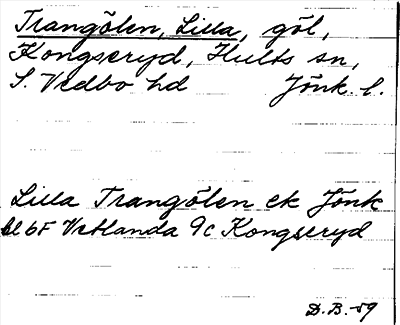 Trangölen, Lilla, göl,
Kongseryd, Hults sn,
S. Vedbo hd Jönk. l.
Lilla Trangölen ek Jönk
bl 6F Vetlanda 9c Kongseryd
D.B. -59